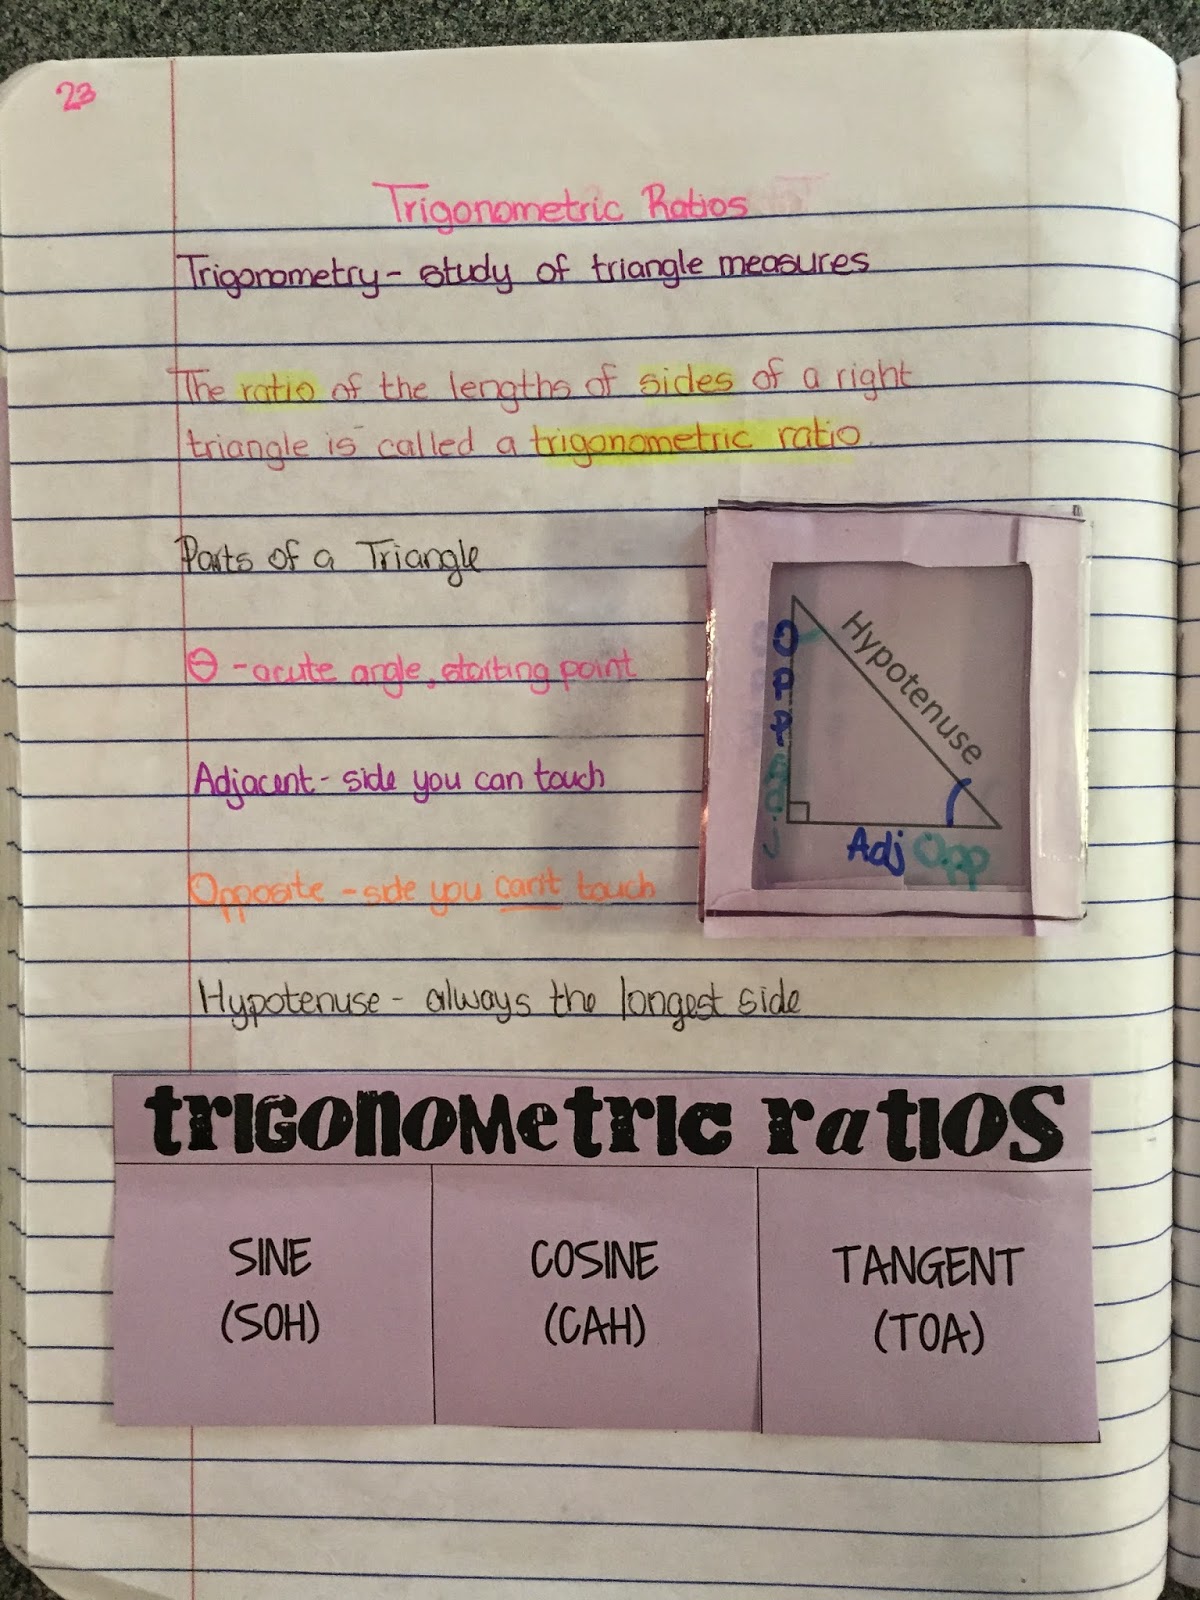 23
Trigonometric Ratios
Trigonometry - study of triangle measures
The ratio of the lengths of sides of a right
triangle is called a trigonometric ratio.
Parts of a Triangle
θ - acute angle, starting point
Adjacent - side you can touch
Opposite - side you can't touch
Hypotenuse - always the longest side
Opp
Adj
Hypotenuse
Adj Opp
trigonometric ratios
SINE
(SOH)
COSINE
(CAH)
TANGENT
(TOA)